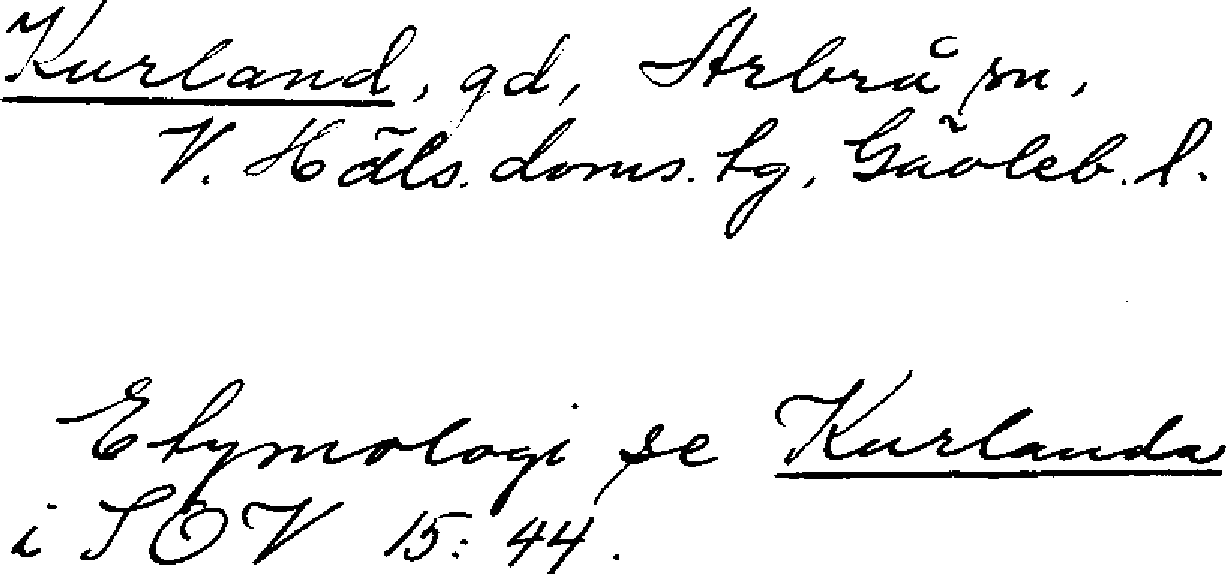 Kurland, gd, Arbrå sn,
V. Häls. doms. tg, Gävleb. l.
Etymologi se Kurlanda
i SOV 15: 44.